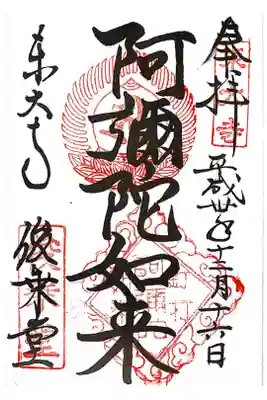 奉拝
平成丗年十二月十六日
阿彌陀如来
東大寺
俊乗堂